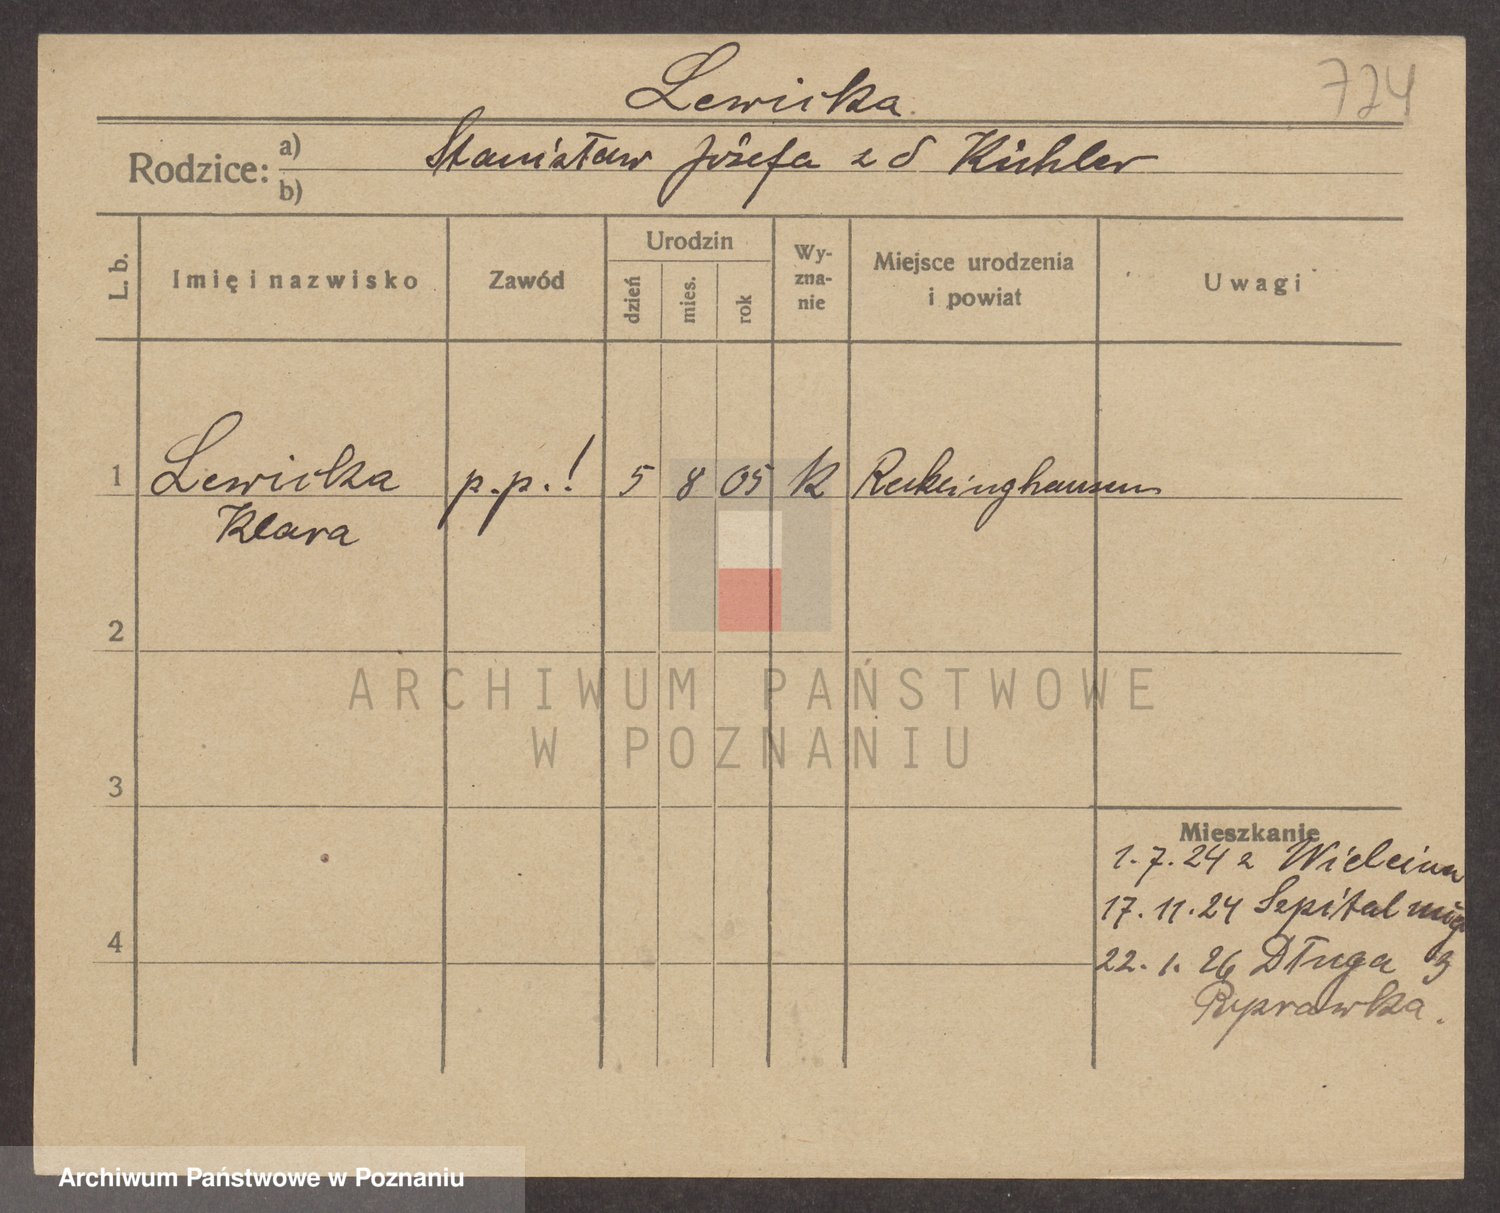 Lewicka
724
Rodzice: a) b)
Stanisław Józefa z d Kühler
L. b.
Imię i nazwisko
Zawód
Urodzin
dzień
mies.
rok
Wy-
zna-
nie
Miejsce urodzenia
i powiat
Uwagi
1 Lewicka p.p.! 5 8 05 k Recklinghausen
Klara
2
ARCHIWUM PAŃSTWOWE
W POZNANIU
3
Mieszkanie
1.7.24 z
17.11.24 Szpital
4
22.1.26 Długa 3
Archiwum Państwowe w Poznaniu